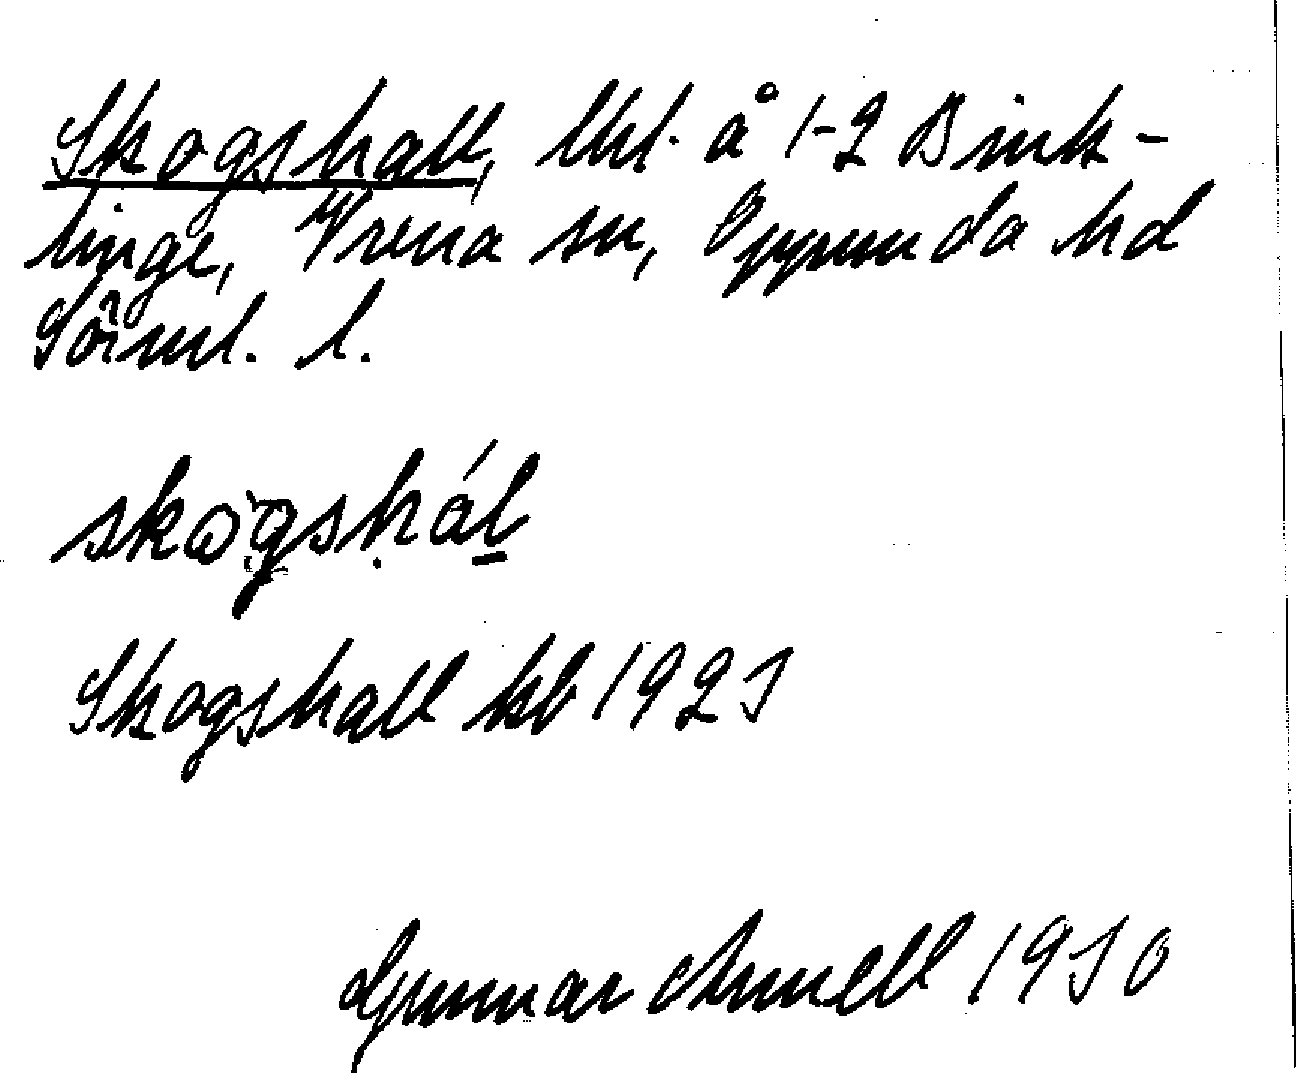 Skogshall, lht. å 1-2 Bink-
linge, Vrena sn, Oppunda hd
Sörml. l.
skogshál
Skogshall kb 1925
Gunnar Arnell 1950